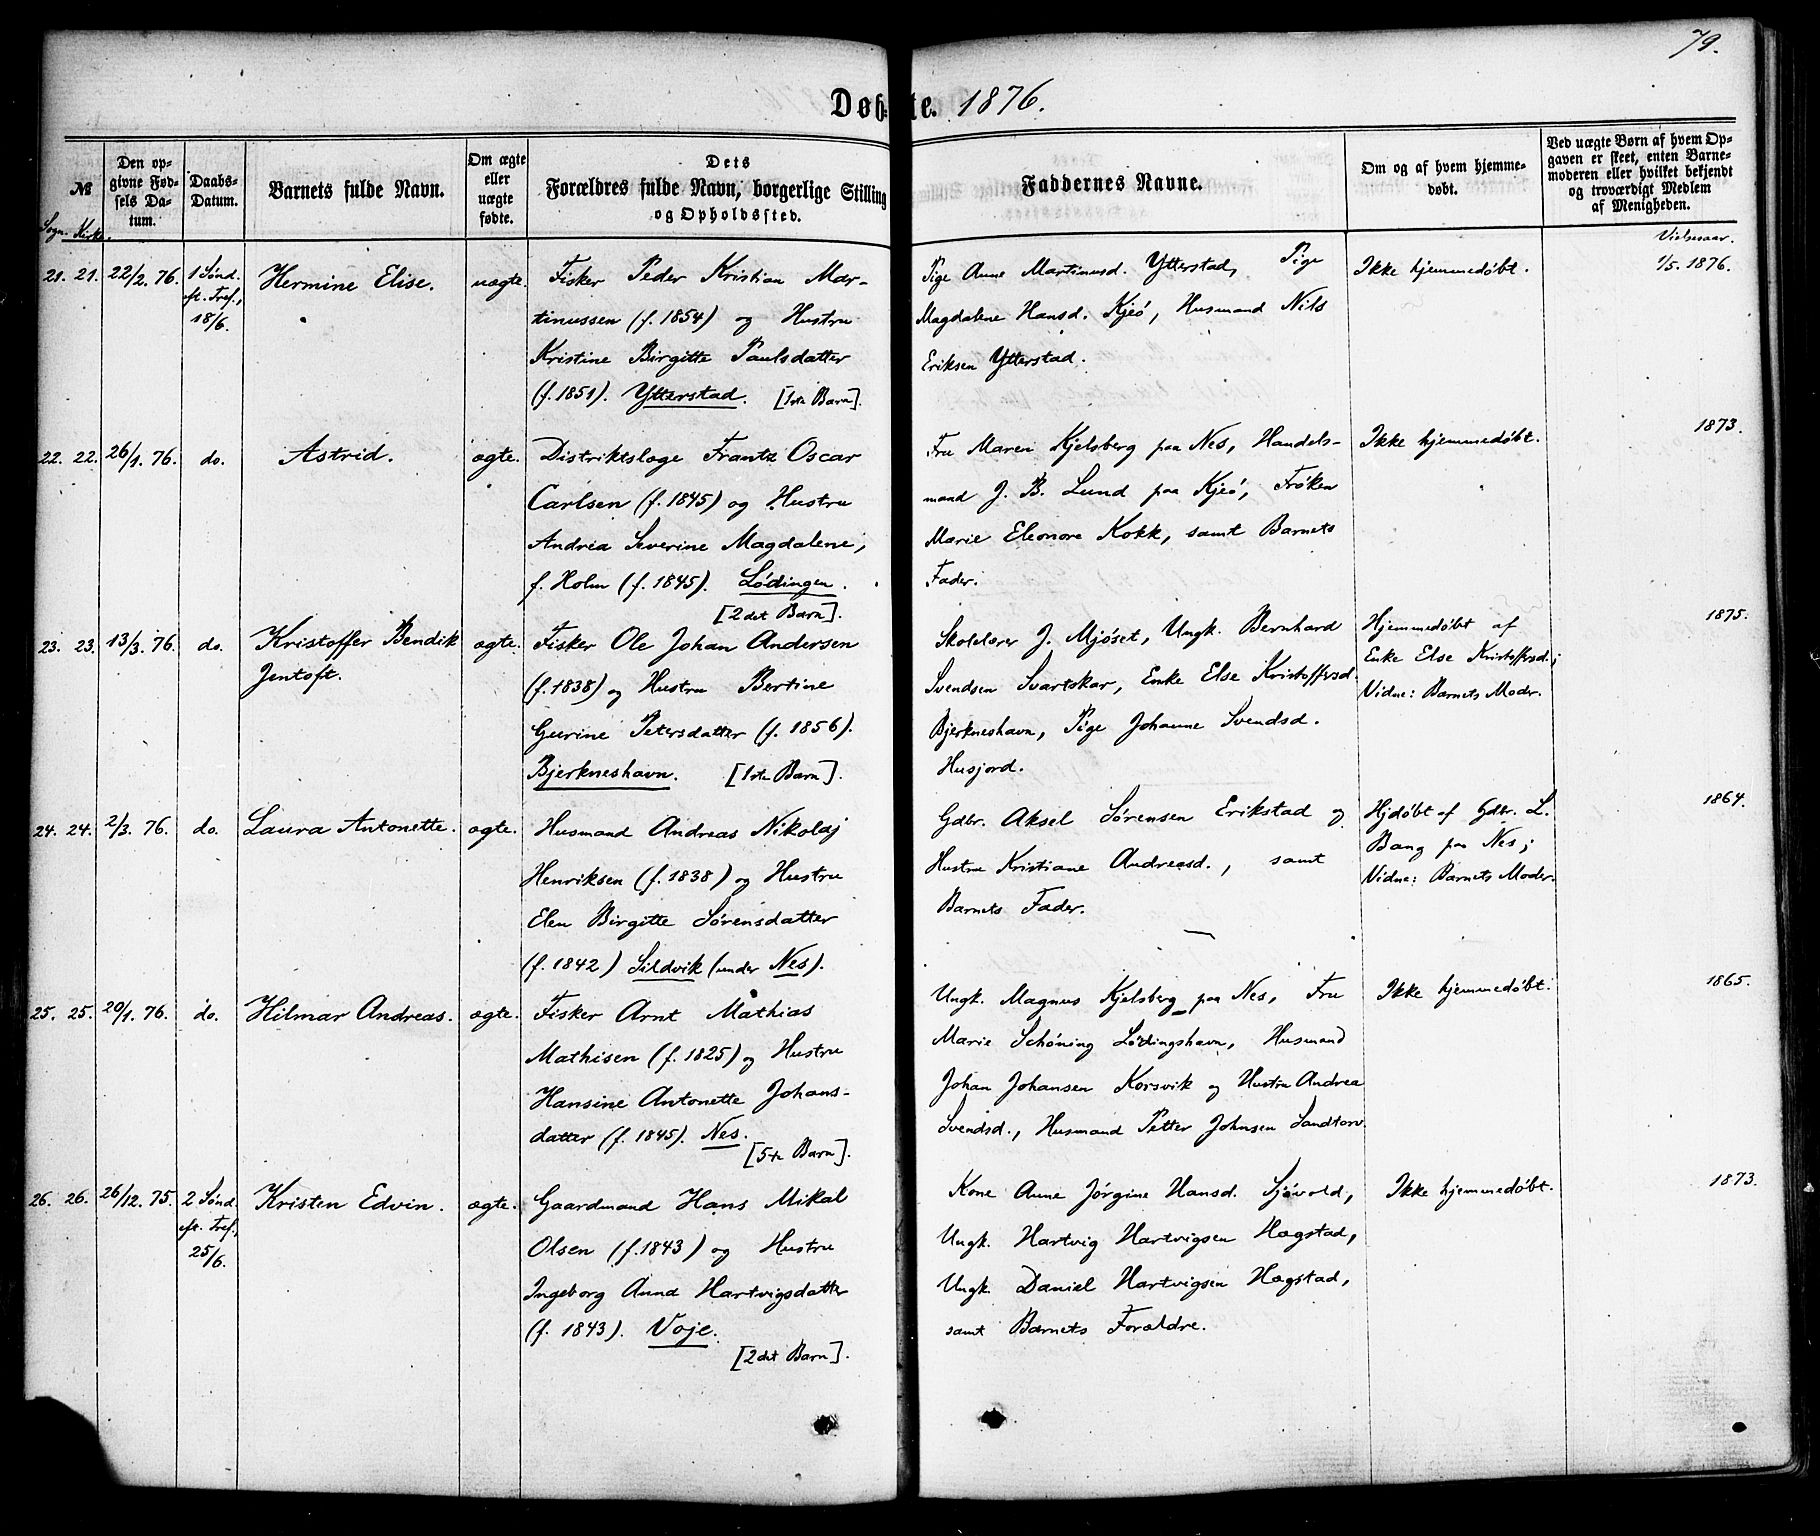 79.
Døbte. 1876.
№
Sogn. Kirke.
Den opgivne Fødsels Datum.
Daabs-Datum.
Barnets fulde Navn.
Om ægte eller uægte fødte.
Dets Forældres fulde Navn, borgerlige Stilling og Opholdssted.
Faddernes Navne.
Om og af hvem hjemmedøbt.
Ved uægte Børn af hvem Opgaven er skeet, enten Barnemoderen eller hvilket bekjendt og troværdigt Medlem af Menigheden.
Vielsesaar.
21. 21. 22/2. 76. 1 Sønd. eft. Tref., 18/6.
Hermine Elise.
uægte.
Fisker Peder Kristian Mar-
tinussen (f. 1854) og Hustru
Kristine Birgitte Paulsdatter
(f. 1851). Ytterstad. [1ste Barn].
Pige Anne Martinusd. Ytterstad, Pige
Magdalene Hansd. Kjeö, Husmand Nils
Eriksen Ytterstad.
Ikke hjemmedøbt.
1/5. 1876.
22. 22. 26/1. 76. do.
Astrid.
ægte.
Distriktslæge Frantz Oscar
Carlsen (f. 1845) og Hustru
Andrea Severine Magdalene,
f. Holm (f. 1845). Lødingen.
[2det Barn].
Fru Maren Kjelsberg paa Nes, Handels-
mand J. B. Lund paa Kjeö, Frøken
Marie Eleonore Kokk, samt Barnets
Fader.
Ikke hjemmedøbt.
1873.
23. 23. 13/3. 76. do.
Kristoffer Bendik
Jentoft.
ægte.
Fisker Ole Johan Andersen
(f. 1838) og Hustru Bertine
Geerine Petersdatter (f. 1856).
Bjerkneshavn. [1ste Barn].
Skolelærer J. Mjøset, Ungk. Bernhard
Svendsen Svartskar, Enke Else Kristoffersd.
Bjerkneshavn, Pige Johanne Svendsd.
Husjord.
Hjemmedøbt af
Enke Else Kristoffersd.;
Vidne: Barnets Moder.
1875.
24. 24. 2/3. 76. do.
Laura Antonette.
ægte.
Husmand Andreas Nikolaj
Henriksen (f. 1838) og Hustru
Elen Birgitte Sørensdatter
(f. 1842) Sildvik (under Nes).
Gdbr. Aksel Sørensen Erikstad og
Hustru Kristiane Andreasd., samt
Barnets Fader.
Hjdøbt af Gdbr. L.
Bang paa Nes;
Vidne: Barnets Moder.
1864.
25. 25. 20/1. 76. do.
Hilmar Andreas.
ægte.
Fisker Arnt Mathias
Mathisen (f. 1825) og Hustru
Hansine Antonette Johans-
datter (f. 1845). Nes.
[5te Barn].
Ungk. Magnus Kjelsberg paa Nes, Fru
Marie Schöning Lødingshavn, Husmand
Johan Johansen Korsvik og Hustru Andrea
Svendsd., Husmand Petter Johnsen Sandtorv.
Ikke hjemmedøbt.
1865.
26. 26. 26/12. 75. 2 Sønd. eft. Tref., 25/6.
Kristen Edvin.
ægte.
Gaardmand Hans Mikal
Olsen (f. 1843) og Hustru
Ingeborg Anna Hartvigsdatter
(f. 1843). Voje.
[2det Barn].
Kone Anne Jørgine Hansd. Sjøvold,
Ungk. Hartvig Hartvigsen Hægstad,
Ungk. Daniel Hartvigsen Hægstad,
samt Barnets Forældre.
Ikke hjemmedøbt.
1873.